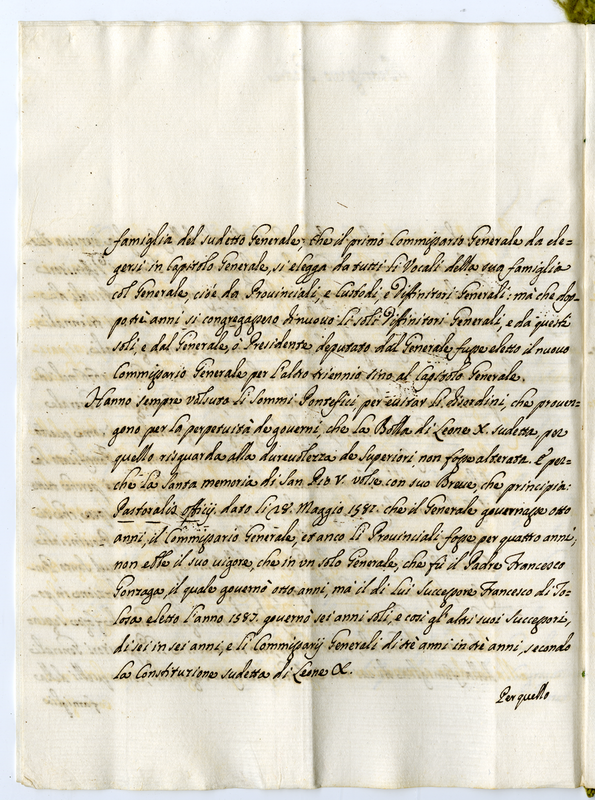 famiglia del sudetto Generale; che il primo Commissario Generale da ele=
gersi in Capitolo Generale, si elegga da tutti li Vocali della sua famiglia
col Generale, cioè da Provinciali, e Custodi, e Diffinitori Generali: mà che dop=
po trè anni si congregassero di nuovo li soli Diffinitori Generali, e da questi
soli, e dal Generale, ò Presidente deputato dal Generale fusse eletto il nuovo
Commissario Generale per l'altro triennio sino al Capitolo Generale.
Hanno sempre voluto li Sommi Pontefici per evitar li disordini, che proven=
gono per la perpetuità de governi, che la Bolla di Leone X. sudetta per
quello risguarda alla durevolezza de Superiori non fosse alterata. E per=
che la santa memoria di San Pio V. volse con suo Breve, che principia:
Pastoralis officij dato li 28. Maggio 1582. che il Generale governasse otto
anni, il Commissario Generale, et anco li Provinciali fosse per quattro anni,
non ebbe il suo vigore, che in un solo Generale, che fù il Padre Francesco
Gonzaga, il quale governò otto anni, mà il di lui Successore Francesco di To=
losa eletto l'anno 1587. governò sei anni soli, e così gl'altri suoi Successori,
di sei in sei anni, e li Commissarij Generali di trè anni in trè anni, secondo
la Constitutione sudetta di Leone X.
Per quello